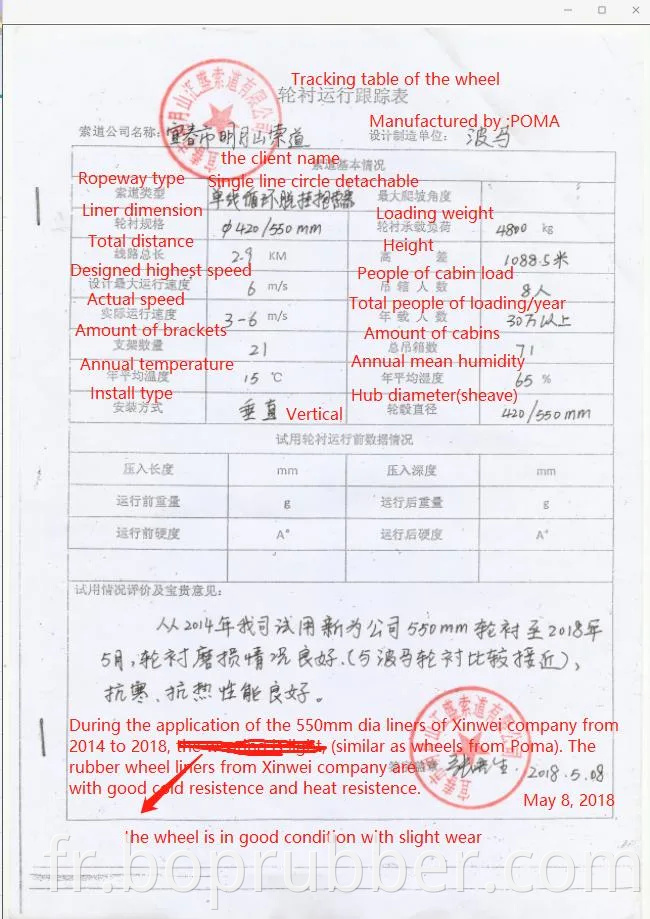 Tracking table of the wheel
轮衬运行跟踪表
Manufactured by :POMA
索道公司名称: 宜春市明月山索道 设计制造单位: 波马
the client name
索道基本情况
Ropeway type Single line circle detachable
索道类型 单线循环脱挂抱索器 最大爬坡角度
Liner dimension Loading weight
轮衬规格 φ420/550mm 轮衬承载负荷 4800 kg
Total distance Height
线路总长 2.9 KM 高 差 1088.5米
Designed highest speed People of cabin load
设计最大运行速度 6 m/s 吊箱人数 8人
Actual speed Total people of loading/year
实际运行速度 3-6 m/s 年载人数 30万以上
Amount of brackets Amount of cabins
支架数量 21 总吊箱数 71
Annual temperature Annual mean humidity
年平均温度 15 ℃ 年平均湿度 65 %
Install type Hub diameter(sheave)
安装方式 垂直 Vertical 轮毂直径 420/550mm
试用轮衬运行前数据情况
压入长度 mm 压入深度 mm
运行前重量 g 运行后重量 g
运行前硬度 A° 运行后硬度 A°
试用情况评价及宝贵意见:
从2014年我司试用新为公司550mm轮衬至2018年
5月,轮衬磨损情况良好.(与波马轮衬比较接近),
抗寒、抗热性能良好。
During the application of the 550mm dia liners of Xinwei company from
2014 to 2018, (similar as wheels from Poma). The
rubber wheel liners from Xinwei company are
with good cold resistence and heat resistence.
2018.5.08
May 8, 2018
the wheel is in good condition with slight wear
fr.boprubber.com